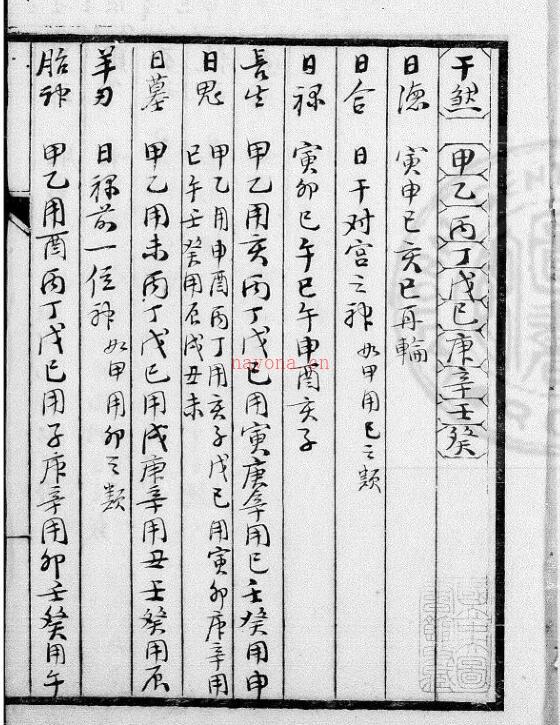 干煞 甲乙丙丁戊己庚辛壬癸
日德 寅申巳亥巳再輪
日合 日干对宫之神 如甲用己之類
日祿 寅卯巳午巳午申酉亥子
長生 甲乙用亥丙丁戊己用寅庚辛用巳壬癸用申
日鬼 甲乙用申酉丙丁用亥子戊己用寅卯庚辛用
巳午壬癸用辰戌丑未
日墓 甲乙用未丙丁戊己用戌庚辛用丑壬癸用辰
羊刃 日祿前一位神 如甲用卯之類
胎神 甲乙用酉丙丁戊己用子庚辛用卯壬癸用午
nayona.cn